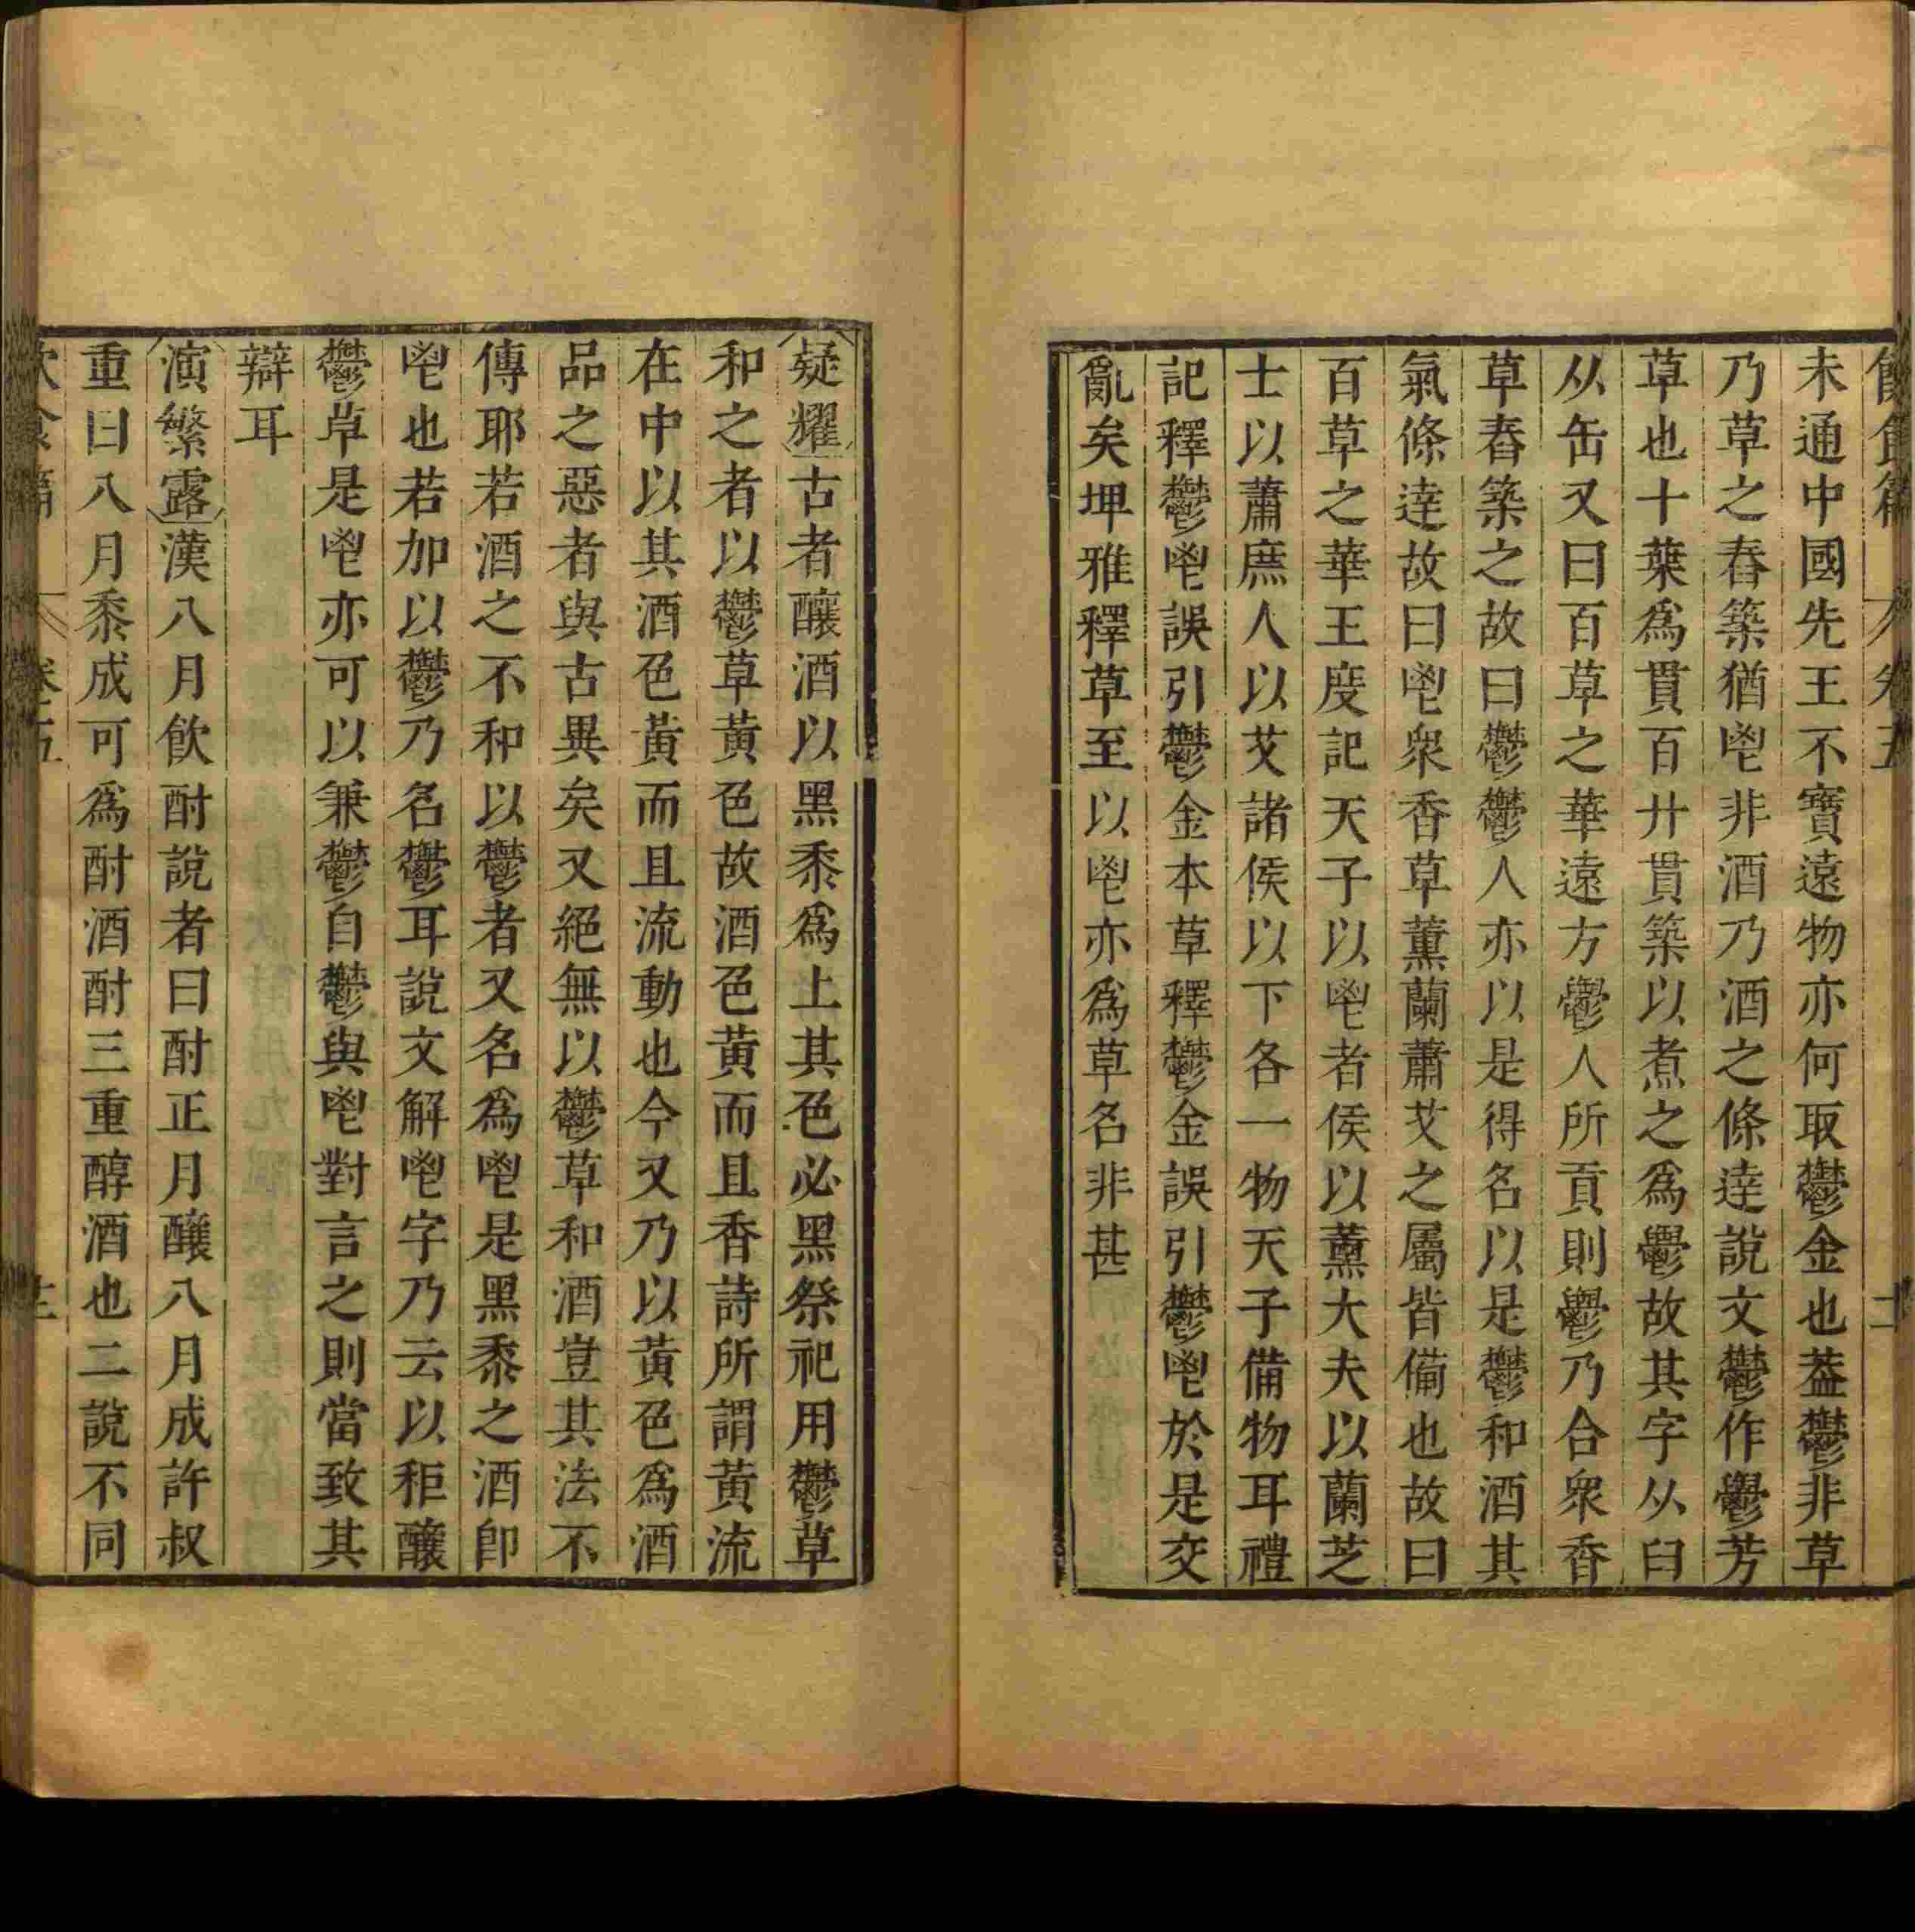 飲食篇 卷五 十二
未通中國先王不寶遠物亦何取鬱金也葢鬱非草
乃草之舂築猶鬯非酒乃酒之條達說文鬱作鬱芳
草也十葉爲貫百廾貫築以煮之爲鬱故其字从臼
从缶又曰百草之華遠方鬱人所貢則鬱乃合衆香
草舂築之故曰鬱鬱人亦以是得名以是鬱和酒其
氣條達故曰鬯衆香草薰蘭蕭艾之屬皆備也故曰
百草之華王度記天子以鬯者侯以薰大夫以蘭芝
士以蕭庶人以艾諸侯以下各一物天子備物耳禮
記釋鬱鬯誤引鬱金本草釋鬱金誤引鬱鬯於是交
亂矣埤雅釋草至以鬯亦爲草名非甚
疑耀古者釀酒以黑黍爲上其色必黑祭祀用鬱草
和之者以鬱草黃色故酒色黃而且香詩所謂黃流
在中以其酒色黃而且流動也今又乃以黃色爲酒
品之惡者與古異矣又絕無以鬱草和酒豈其法不
傳耶若酒之不和以鬱者又名爲鬯是黑黍之酒卽
鬯也若加以鬱乃名鬱耳說文解鬯字乃云以秬釀
鬱草是鬯亦可以兼鬱自鬱與鬯對言之則當致其
辯耳
演繁露漢八月飮酎說者曰酎正月釀八月成許叔
重曰八月黍成可爲酎酒酎三重醇酒也二說不同
飲食篇 卷五